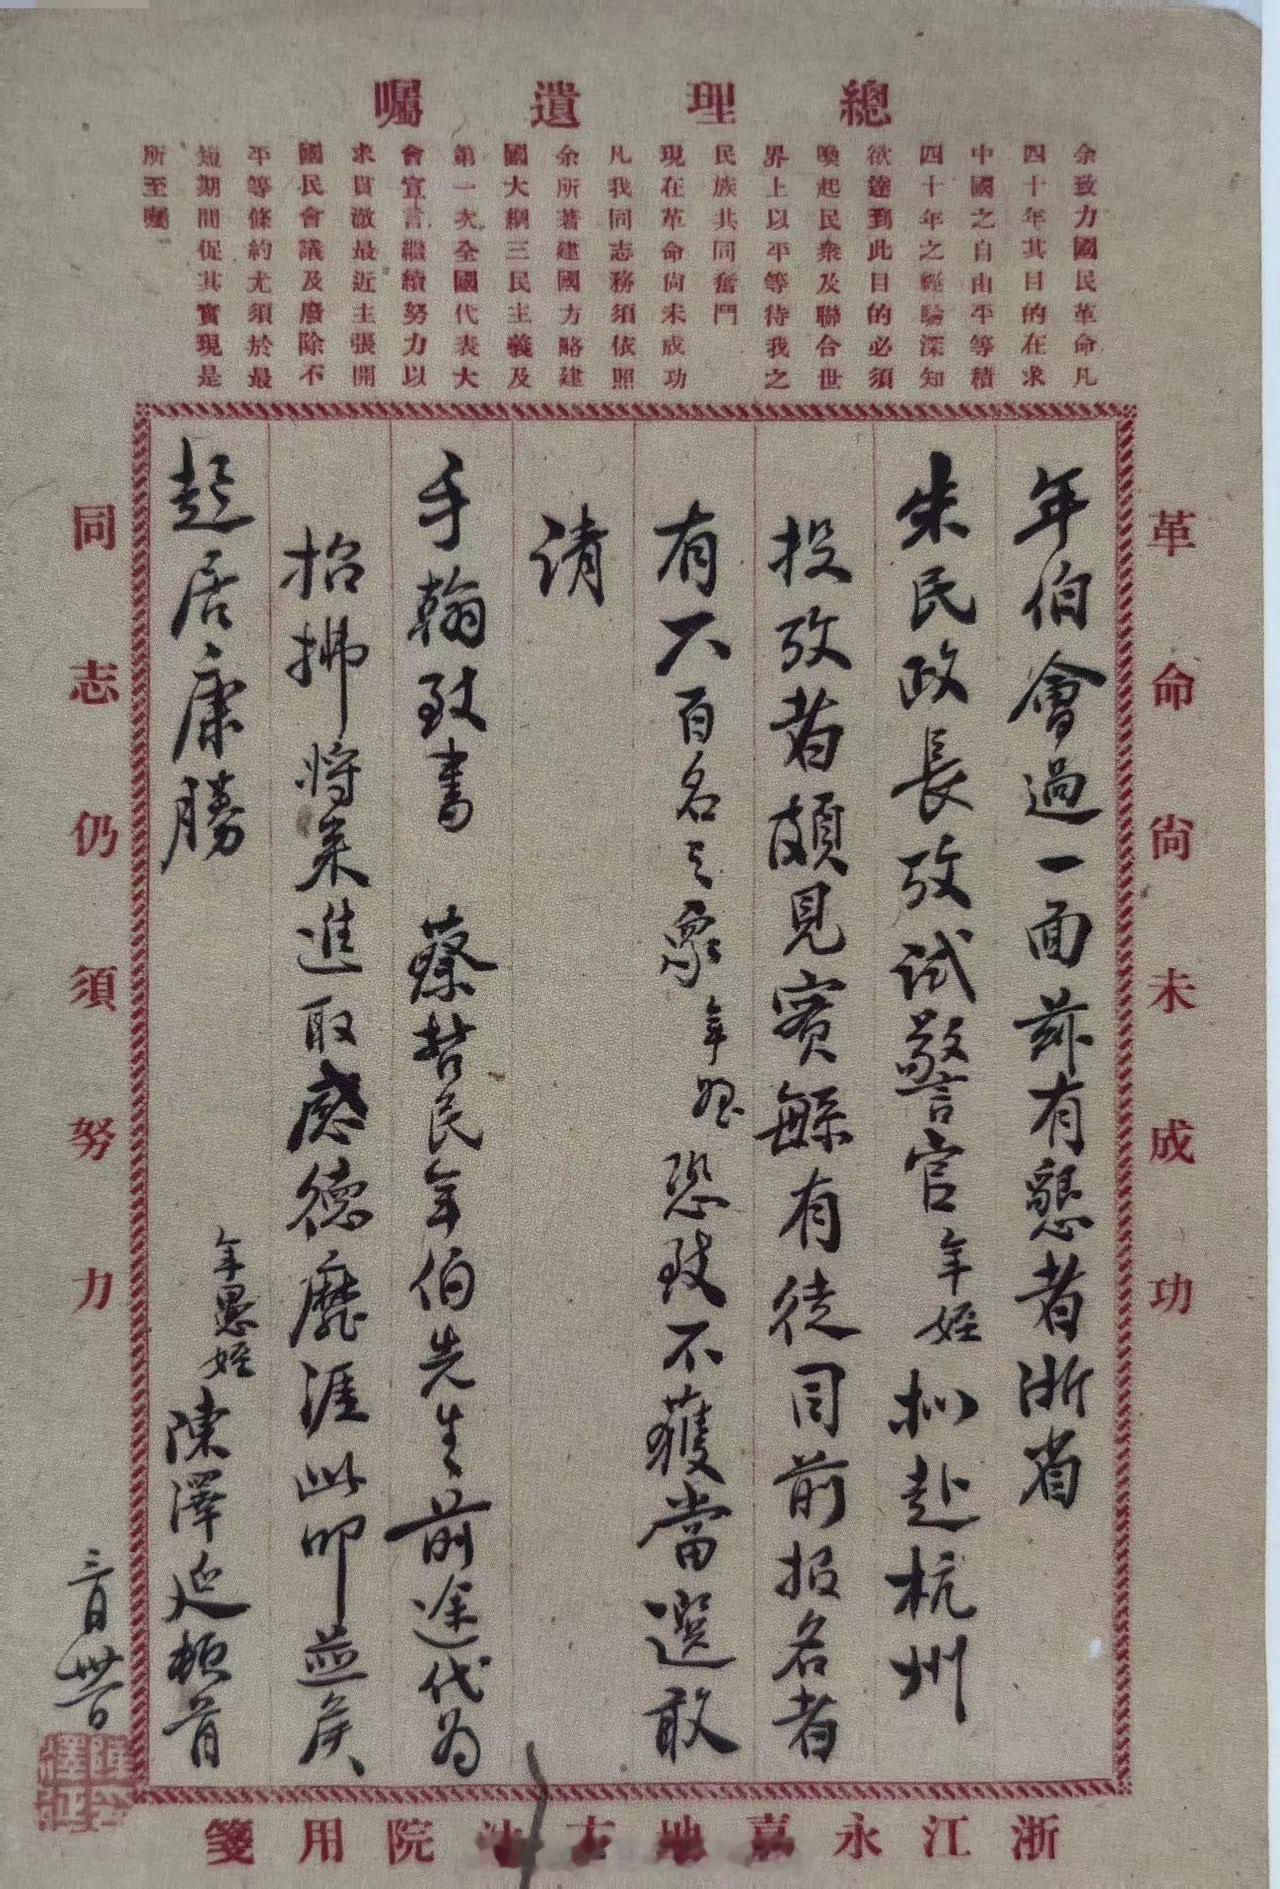 總理遺囑
余致力國民革命凡
四十年其目的在求
中國之自由平等積
四十年之經驗深知
欲達到此目的必須
喚起民衆及聯合世
界上以平等待我之
民族共同奮鬥
現在革命尙未成功
凡我同志務須依照
余所著建國方略建
國大綱三民主義及
第一次全國代表大
會宣言繼續努力以
求貫澈最近主張開
國民會議及廢除不
平等條約尤須於最
短期間促其實現是
所至囑
革命尙未成功
年伯會過一面茲有懇者浙省
朱民政長攷試警官年姪擬赴杭州
投攷者頗見實繇有徒目前報名者
有六百名之衆年姪恐致不獲當選敢
请
手翰致書 蔡哲民年伯先生前途代为
招拂将来進取感德靡涯此叩並矦
起居康勝
年愚姪陳澤延頓首
三月廿日
同志仍須努力
浙江永嘉地方法院用箋